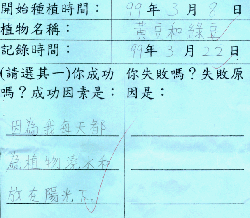 開始種植時間： 99年3月9日
植物名稱： 黃豆和綠豆
記錄時間： 99年3月22日
(請選其一)你成功嗎？成功因素是：
你失敗嗎？失敗原因是：
因為我每天都
為植物澆水和
放在陽光下